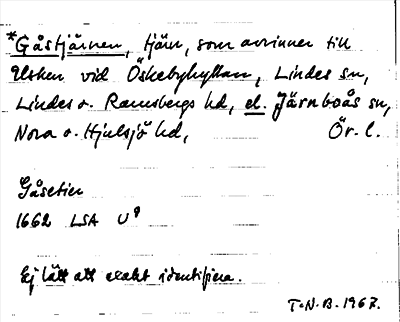 *Gåstjärnen, tjärn, som avrinner till
Usken vid Öskebyhyttan, Lindes sn,
Lindes o. Ramsbergs hd, el. Järnboås sn,
Nora o. Hjulsjö hd, Ör. l.
Gåsetien
1662 LSA U⁹
Ej lätt att exakt identifiera.
T.N.B. 1967.